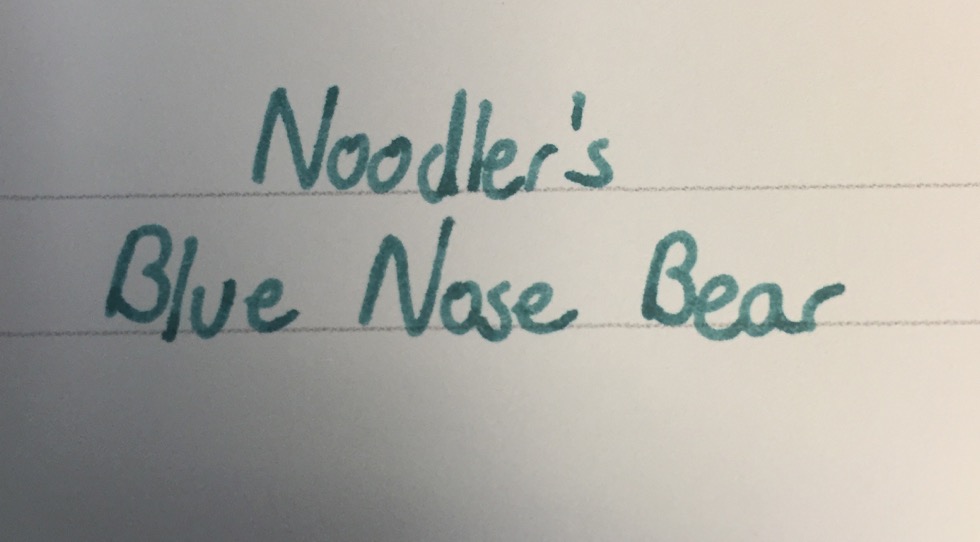 Noodler's
Blue Nose Bear